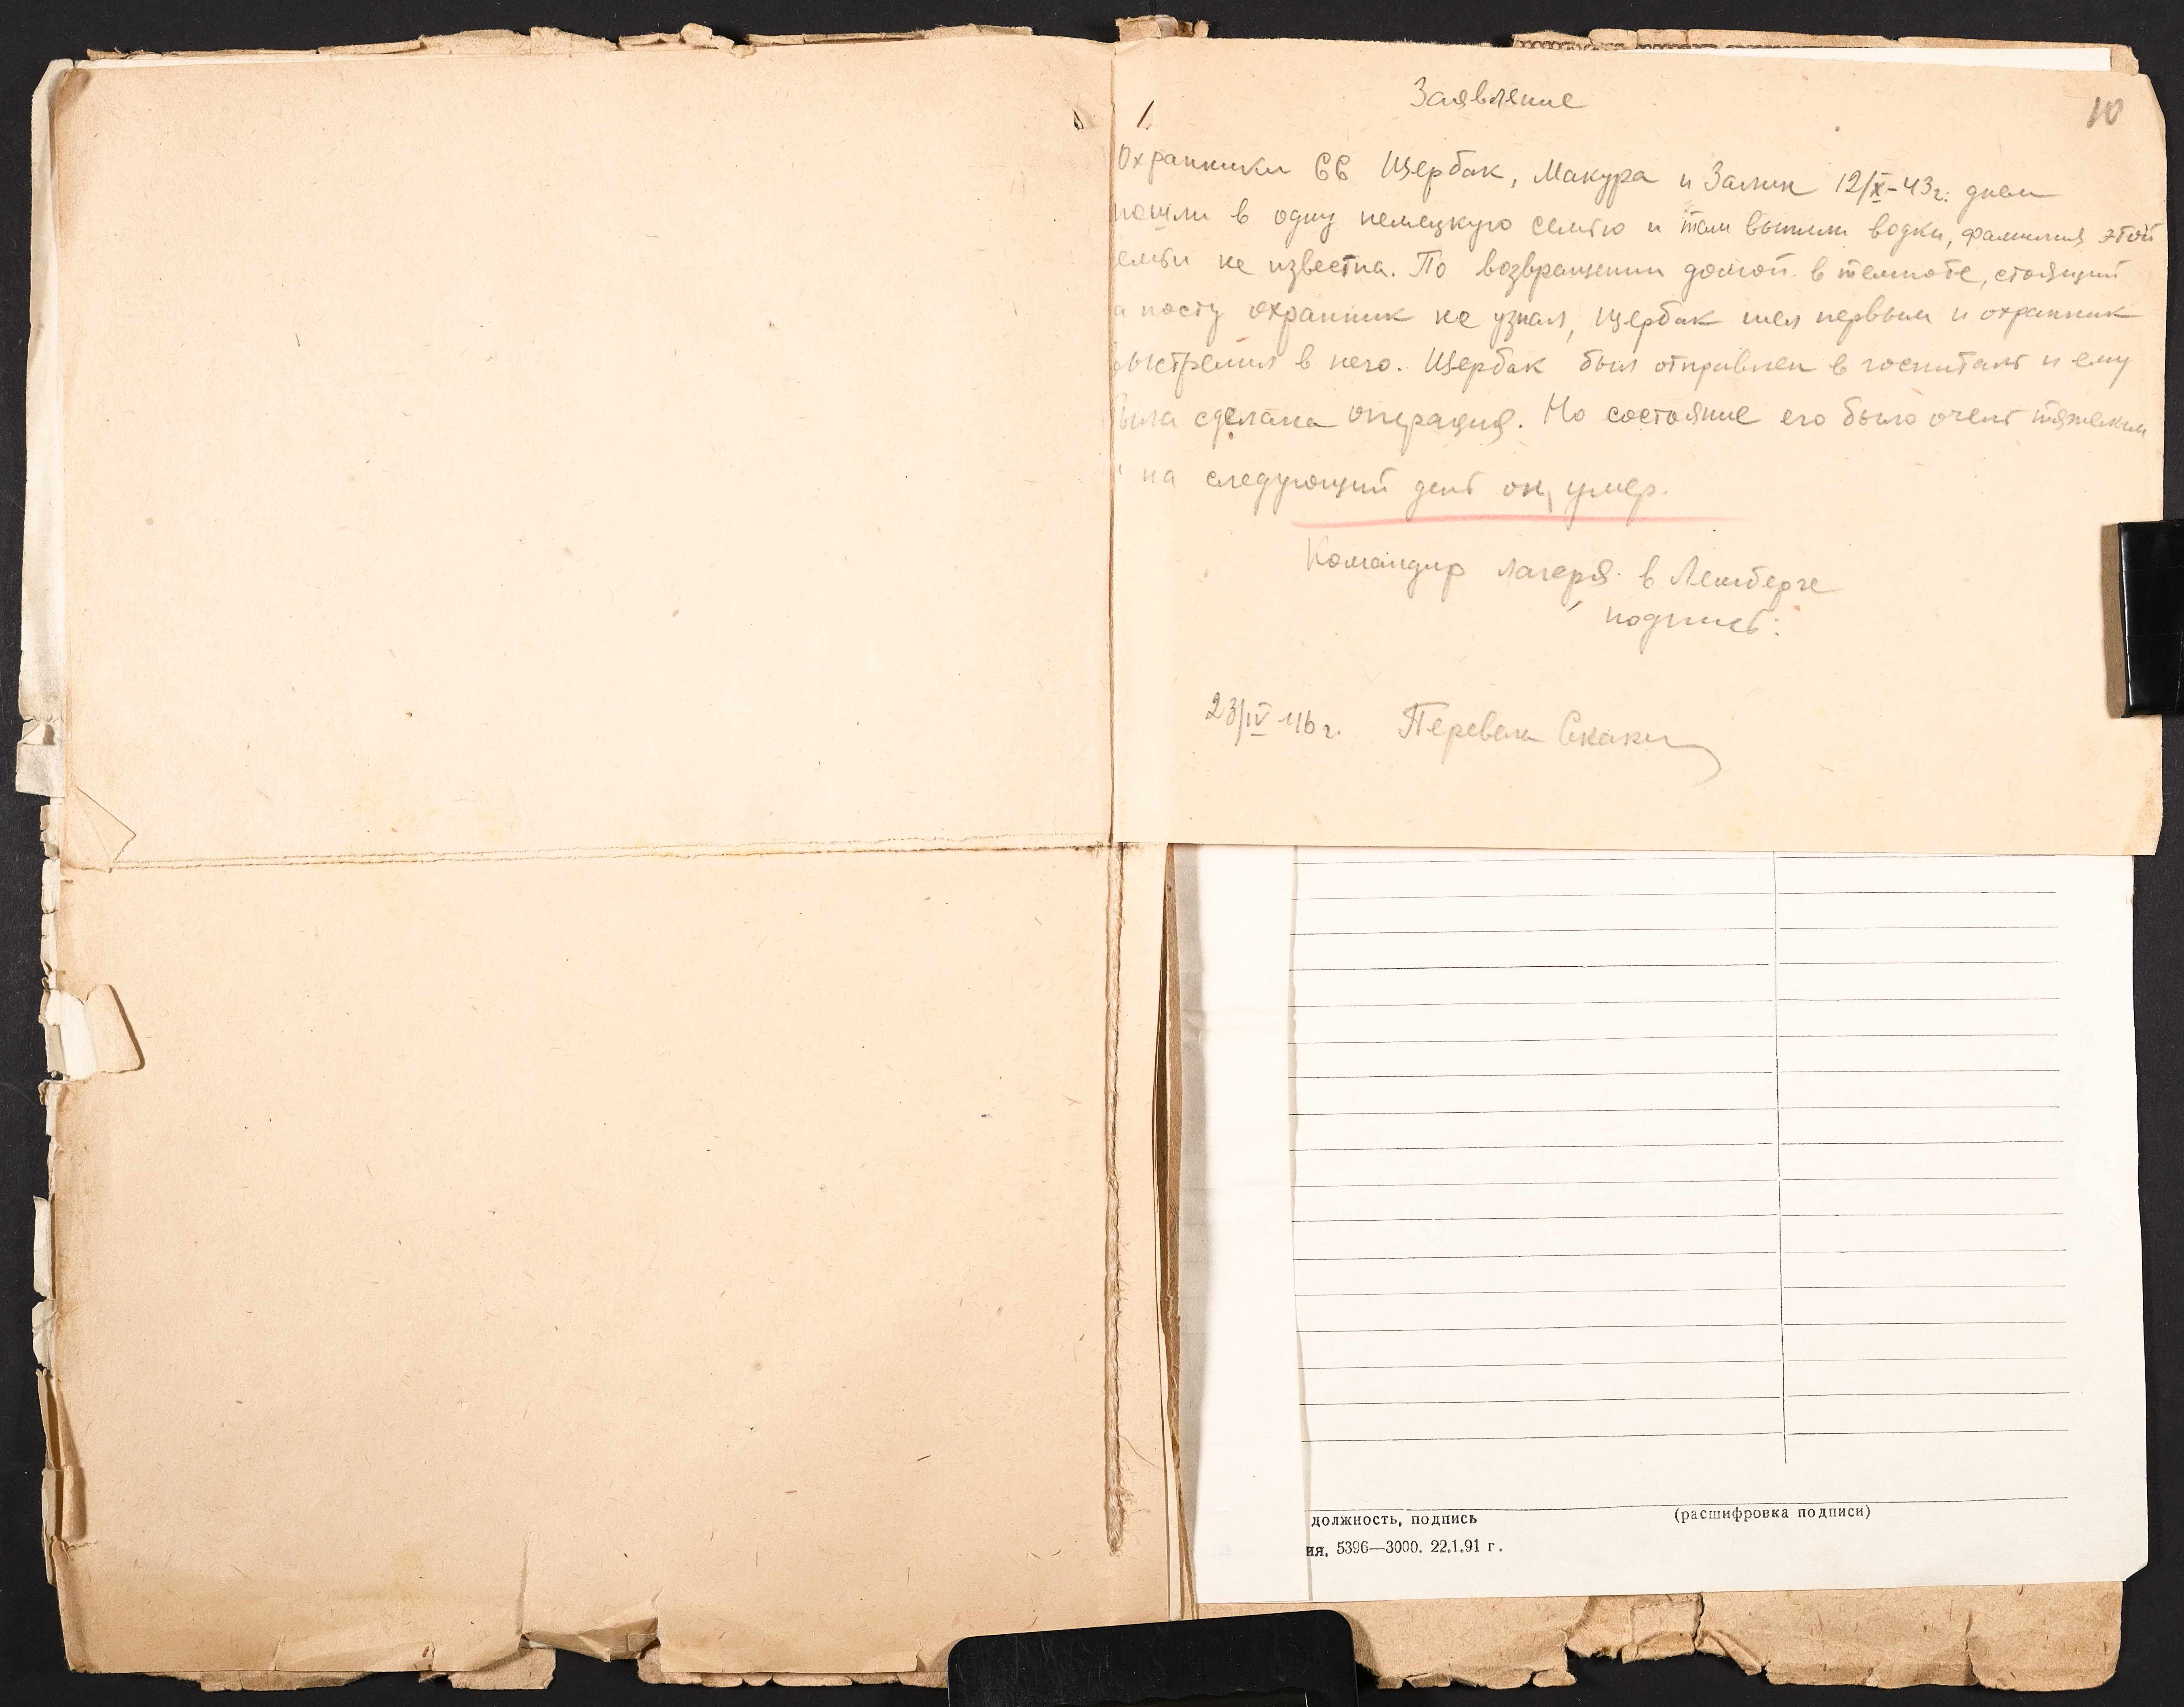 Заявление
10
1.
Охранники СС Щербак, Макура и Залин 12/X-43г. днем
пошли в одну немецкую семью и там выпили водки, фамилия этой
емьи не известна. По возвращении домой в темноте, стоящий
а посту охранник не узнал, Щербак шел первым и охранник
выстрелил в него. Щербак был отправлен в госпиталь и ему
была сделана операция. Но состояние его было очень тяжелым
и на следующий день он умер.
Командир лагеря в Лемберге
подпись:
23/IV 46 г. Перевела
должность, подпись (расшифровка подписи)
ия. 5396—3000. 22.1.91 г.